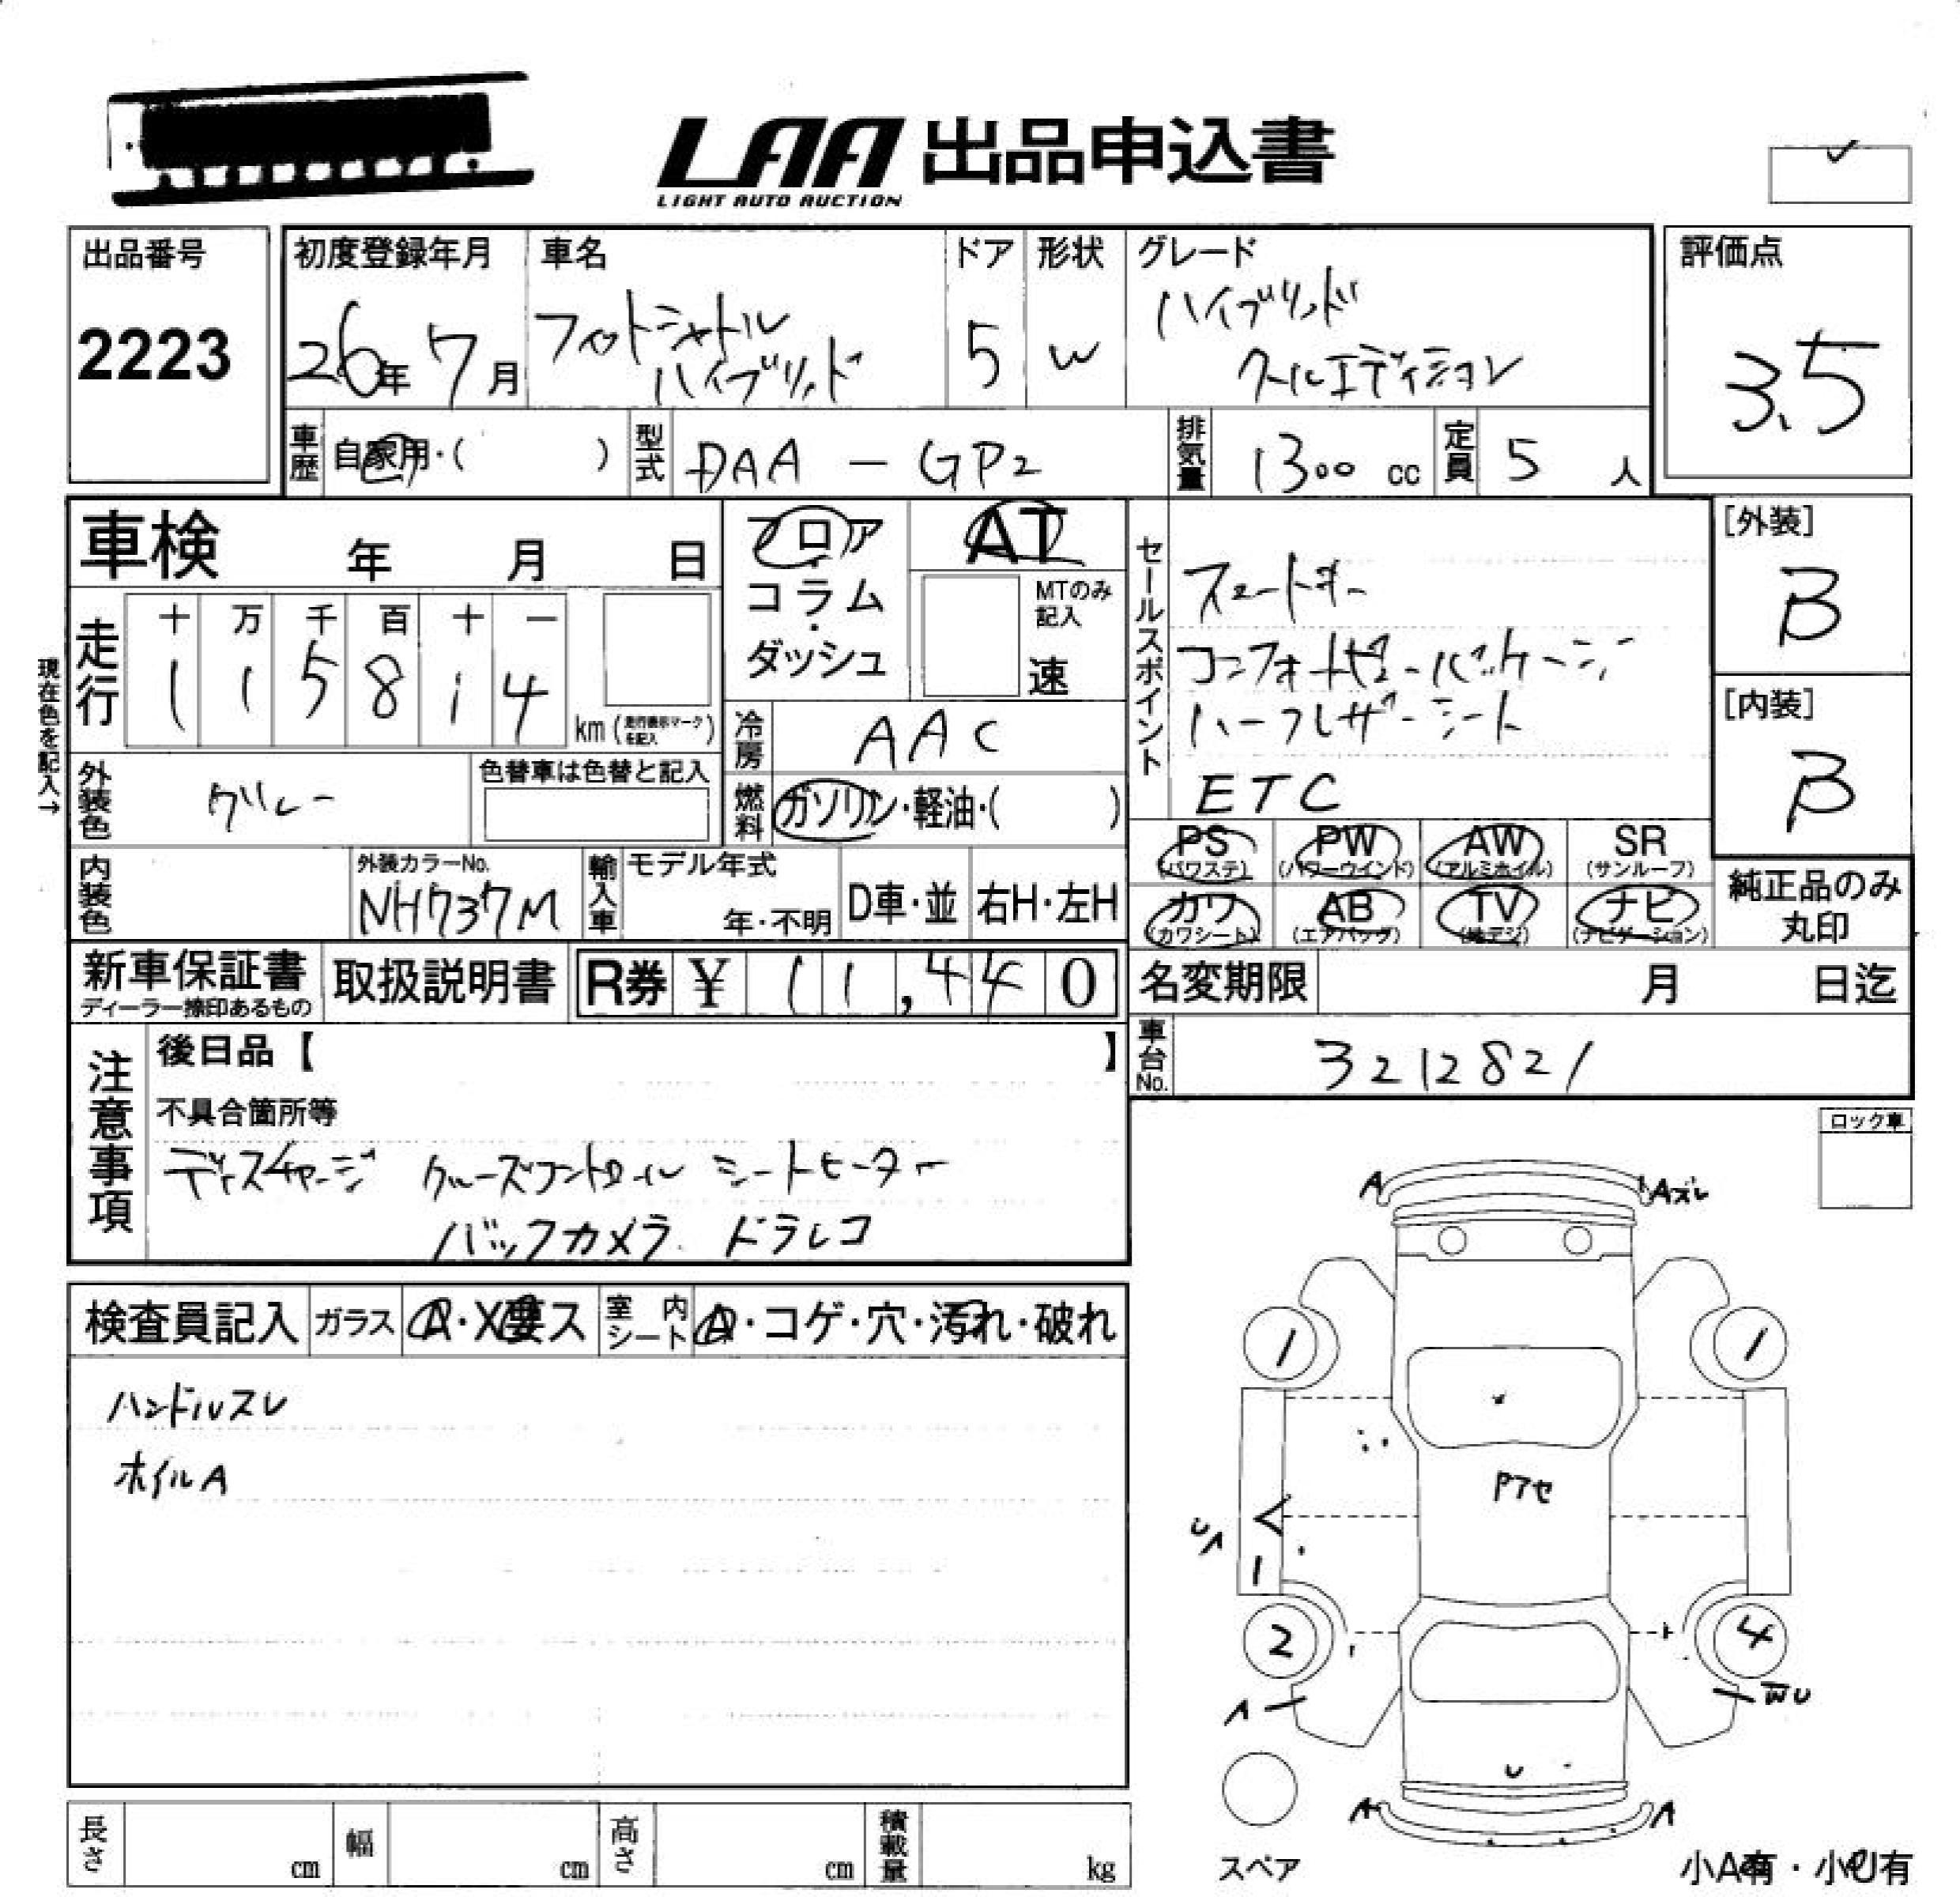 LAA 出品申込書
LIGHT AUTO AUCTION
出品番号
2223
初度登録年月
26年7月
車名
フィットシャトル
ハイブリッド
ドア
5
形状
W
グレード
ハイブリッド
クールエディション
評価点
3.5
車歴
自家用・( )
型式
DAA - GP2
排気量
1300 cc
定員
5 人
車検 年 月 日
走行
十 万 千 百 十 一
1 1 5 8 1 4
km (走行表示マークを記入)
現在色を記入→
フロア
・
コラム
・
ダッシュ
AT
MTのみ
記入
速
セールスポイント
スマートキー
コンフォートビューパッケージ
ハーフレザーシート
ETC
[外装]
B
[内装]
B
冷房
AAC
燃料
ガソリン・軽油・( )
外装色
グレー
色替車は色替と記入
内装色
外装カラーNo.
NH737M
輸入車
モデル年式
年・不明
D車・並
右H・左H
PS
(パワステ)
PW
(パワーウインド)
AW
(アルミホイル)
SR
(サンルーフ)
カワ
(カワシート)
AB
(エアバッグ)
TV
(地デジ)
ナビ
(ナビゲーション)
純正品のみ
丸印
新車保証書
ディーラー捺印あるもの
取扱説明書
R券 ¥ 11,440
名変期限 月 日迄
車台No.
3212821
注意事項
後日品【 】
不具合箇所等
ディスチャージ クルーズコントロール シートヒーター
バックカメラ ドラレコ
ロック車
検査員記入
ガラス
A・X要ス
室内シート
A・コゲ・穴・汚れ・破れ
ハンドルスレ
ホイルA
A
Aズレ
1
1
Pアセ
UA
1
2
4
A
WU
U
A
A
スペア
小A有・小U有
長さ cm
幅 cm
高さ cm
積載量 kg